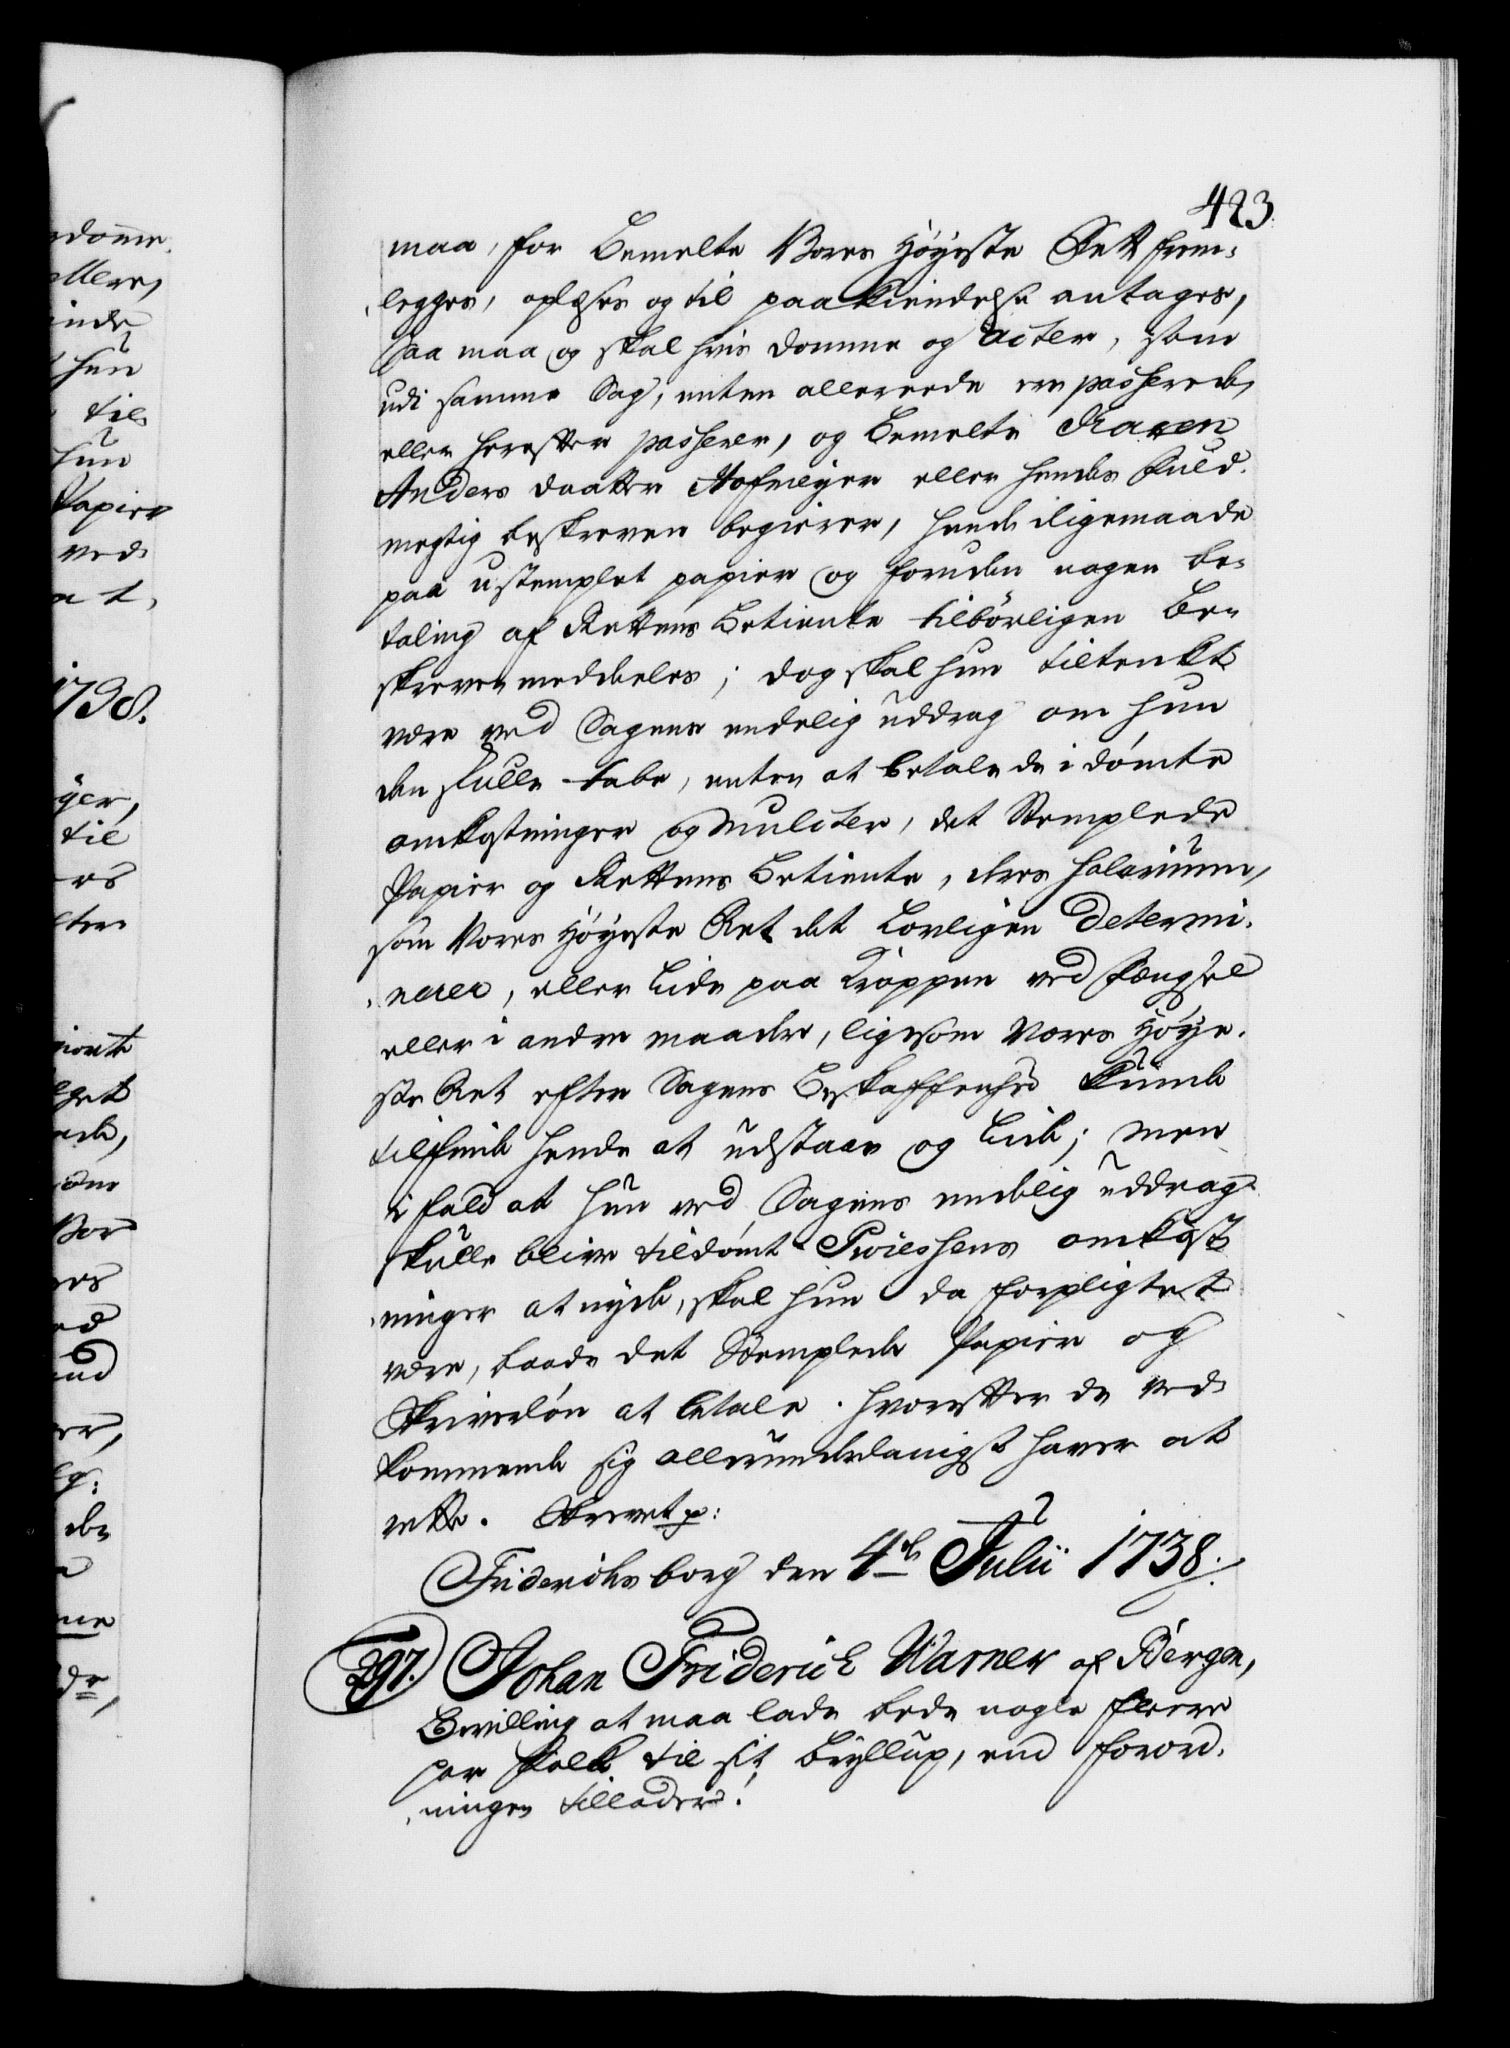 423.
maa, for bemelte Vores Høyeste Rett frem-
legges, oplæses og til paakiendelse antages,
saa maa og skal hvis domme og acter, som
udi samme Sag, enten allereede ere passerede,
eller herefter passerer, og bemelte Karen
Anders daatter Hofmeyer eller hendes Fuld-
megtig beskreven begierer, hende iligemaade
paa ustemplet papier og foruden nogen be-
taling af Rettens betiente tilbörligen be-
skreven meddeeles; dog skal hun tiltenkt
være ved Sagens endelig uddrag om hun
den skulle tabe, enten at betale de i dømte
omkostninger og mulcter, det Stemplede
Papier og Rettens betiente, deres Salarium,
som Vores Høyeste Ret det lovligen determi-
nerer, eller lide paa kroppen ved fængsel
eller i andre maader, ligesom Vores Høye-
ste Ret efter Sagens beskaffenhed kunde
tilfinde hende at udstaae og lide; men
i fald at hun ved Sagens endelig uddrag
skulle blive tildømt Processens omkost-
ninger at nyde, skal hun da forpligtet
være, baade det Stemplede Papier og
Skriverløn at betale. hvorefter de ved-
kommende sig allerunderdanigst haver at
rette. Skrevet p:
Friderichsborg den 4de Julii 1738.
297. Johan Friderich Warner af Bergen,
Bevilling at maa lade bede nogle fleere
par folk til sit bryllup, end forord-
ningen tillader.
1738.
hun
til
hun
Papier
ved
til